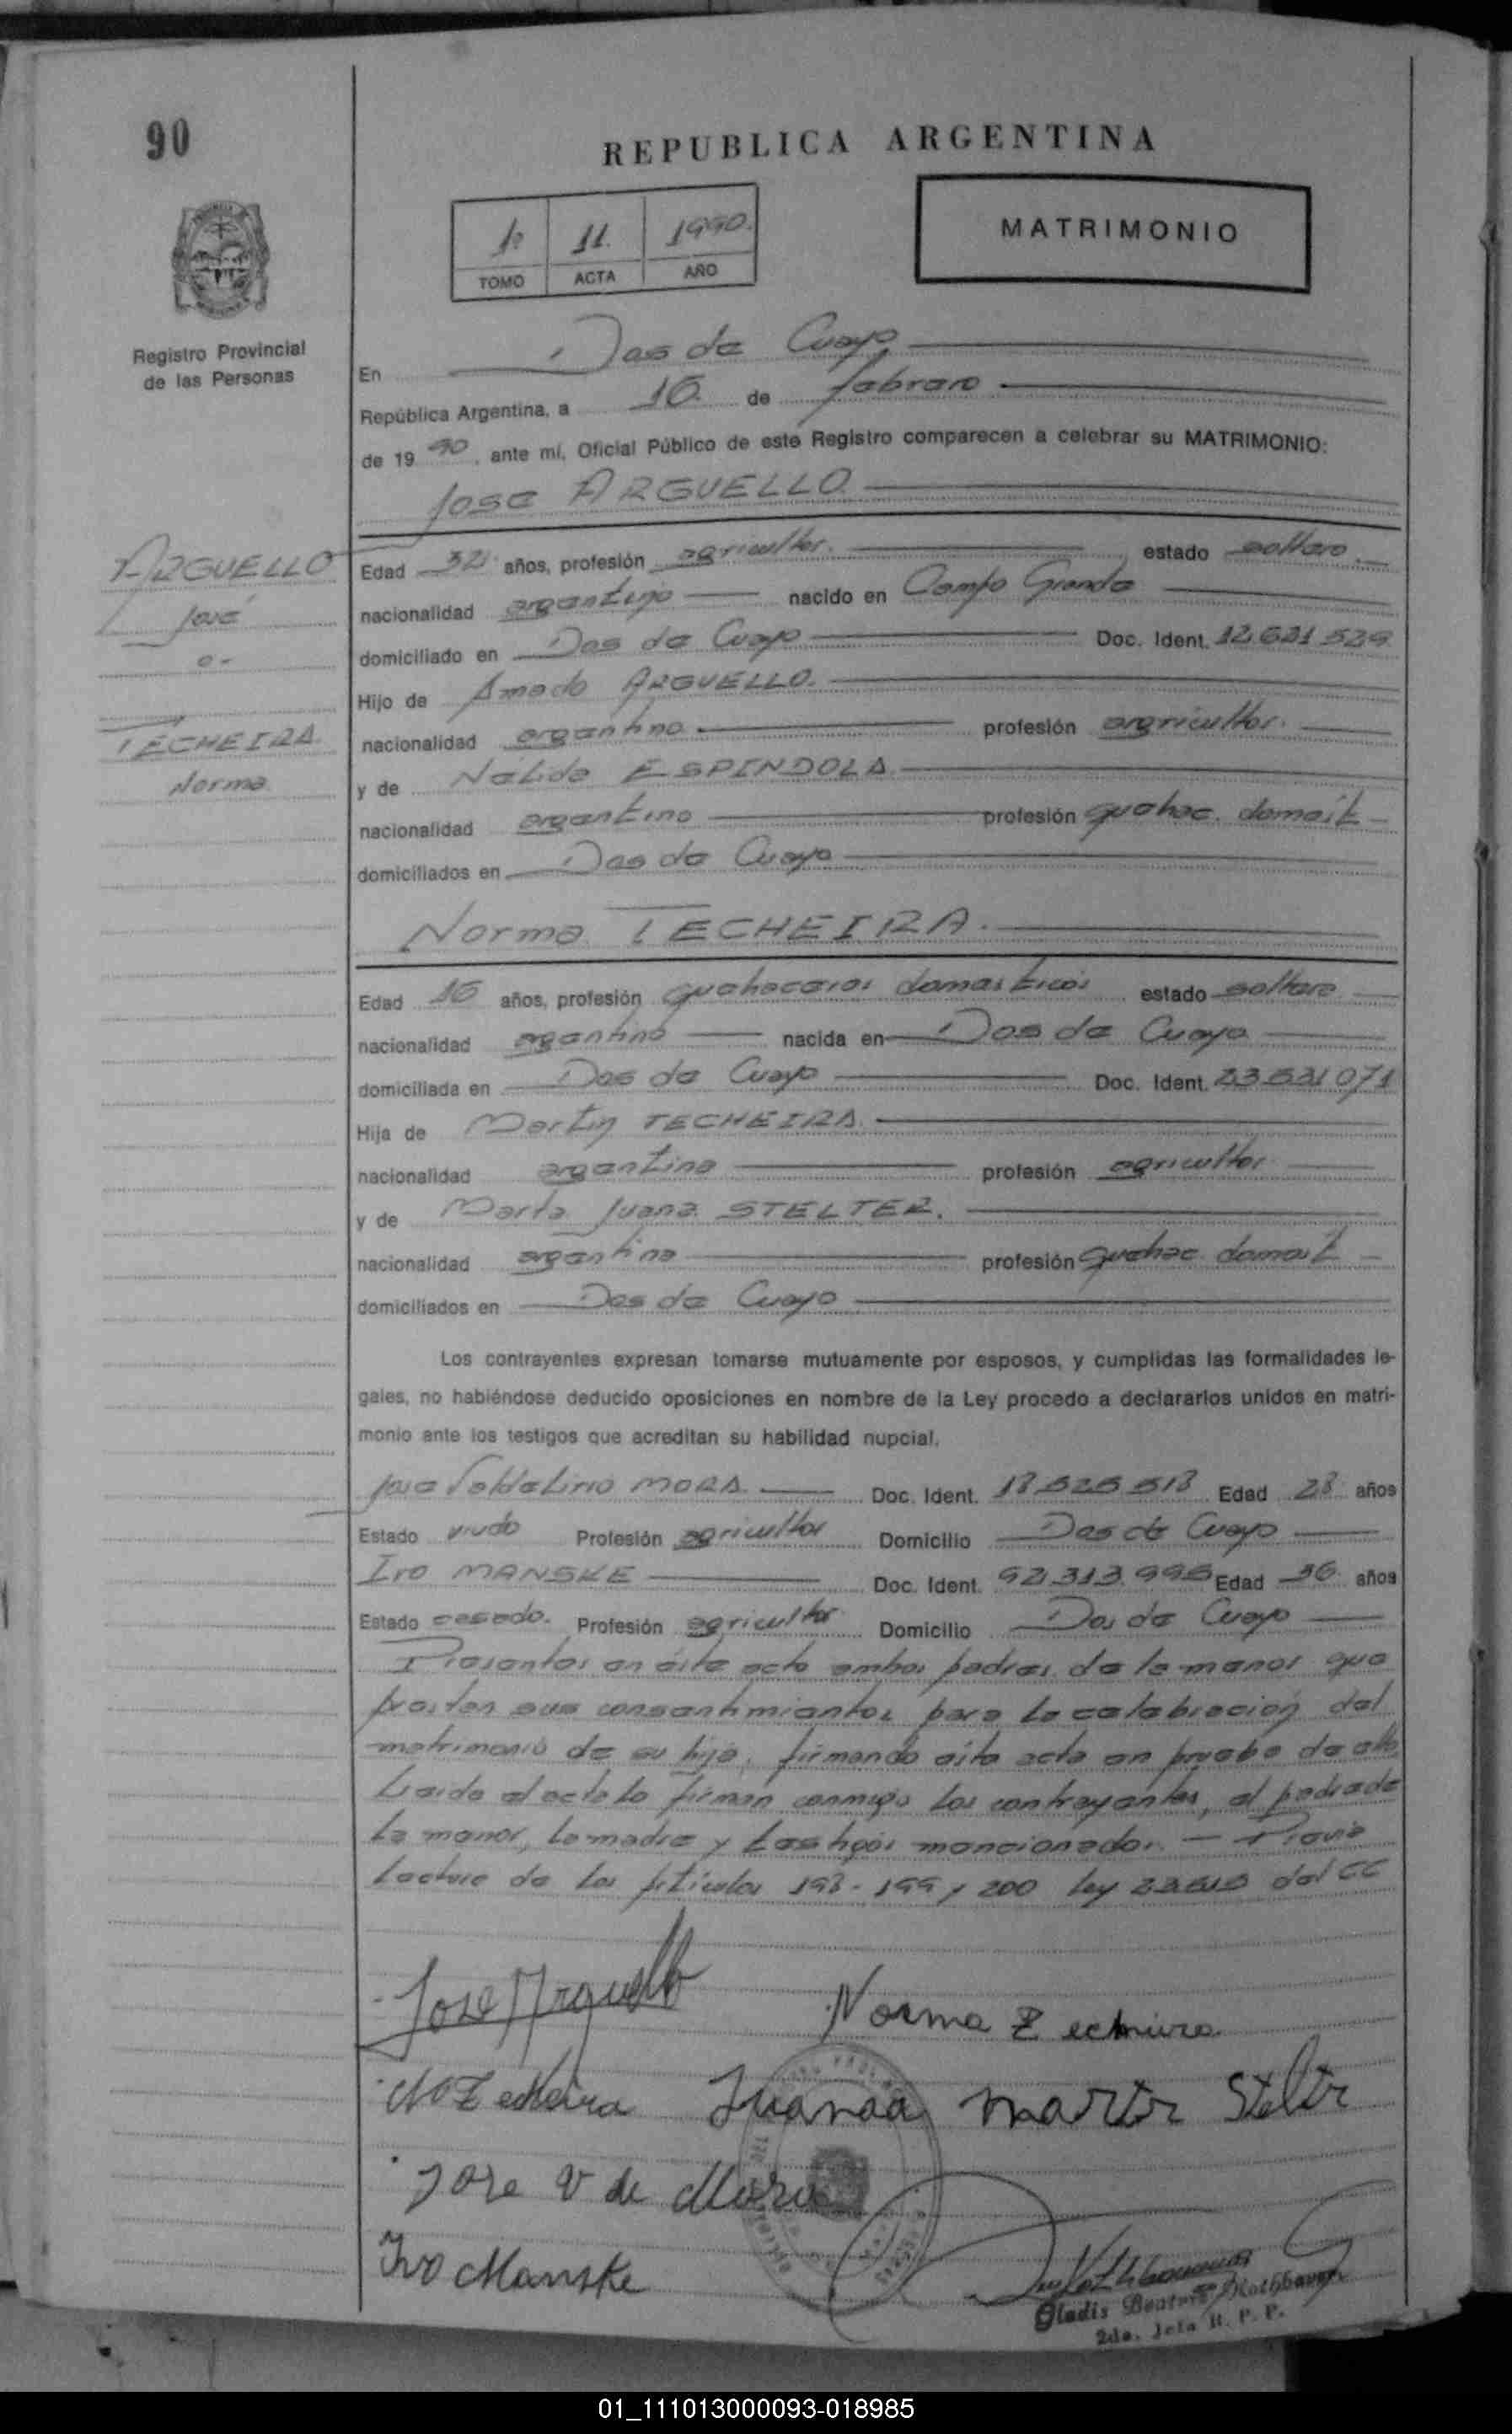 90
REPUBLICA ARGENTINA
1º 11. 1990.
TOMO ACTA AÑO
MATRIMONIO
Registro Provincial
de las Personas
En Dos de Mayo
República Argentina, a 16 de febrero
de 19 90, ante mí, Oficial Público de este Registro comparecen a celebrar su MATRIMONIO:
Jose ARGUELLO
ARGUELLO
José
TECHEIRA
Norma
Edad 32 años, profesión agricultor. estado soltero
nacionalidad argentino nacido en Campo Grande
domiciliado en Dos de Mayo Doc. Ident.
Hijo de Amado ARGUELLO.
nacionalidad argentino profesión agricultor.
y de Nélida ESPINDOLA
nacionalidad argentina profesión quehac. domést
domiciliados en Dos de Mayo
Norma TECHEIRA.
Edad 16 años, profesión quehaceres domésticos estado soltera
nacionalidad argentina nacida en Dos de Mayo
domiciliada en Dos de Mayo Doc. Ident. 23.531 071
Hija de Martin TECHEIRA
nacionalidad argentino profesión agricultor
y de Marta Juana STELTER.
nacionalidad argentina profesión quehac. domést
domiciliados en Dos de Mayo
Los contrayentes expresan tomarse mutuamente por esposos, y cumplidas las formalidades le-
gales, no habiéndose deducido oposiciones en nombre de la Ley procedo a declararlos unidos en matri-
monio ante los testigos que acreditan su habilidad nupcial.
Jose MORA Doc. Ident. Edad 28 años
Estado viudo Profesión agricultor Domicilio Dos de Mayo
Ivo MANSKE Doc. Ident. 92.313.995 Edad 36 años
Estado casado. Profesión agricultor Domicilio Dos de Mayo
Presentes en éste acto ambos padres de la menor que
prestan sus consentimientos para la celebración del
matrimonio de su hija, firmando ésta acta en prueba de ello
Leida el acta la firman conmigo los contrayentes, el padre de
la menor, la madre y testigos mencionados. — Previa
lectura de los artículos 198 - 199 y 200 ley 23.515 del CC
Jose Arguello
Norma Techeira
M Techeira Juanaa Marta Stelter
Jose V de Mora
Ivo Manske
Gladis Beatriz Rothbauer
2da. Jefa R. P. P.
01_111013000093-018985